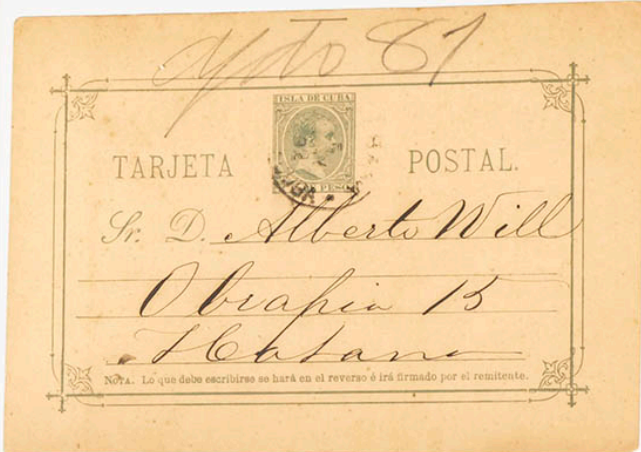 Apdo 87
ISLA DE CUBA
PESO
TARJETA POSTAL.
Sr. D. Alberto Will
Obrapia 15
Habana
NOTA. Lo que debe escribirse se hará en el reverso é irá firmado por el remitente.